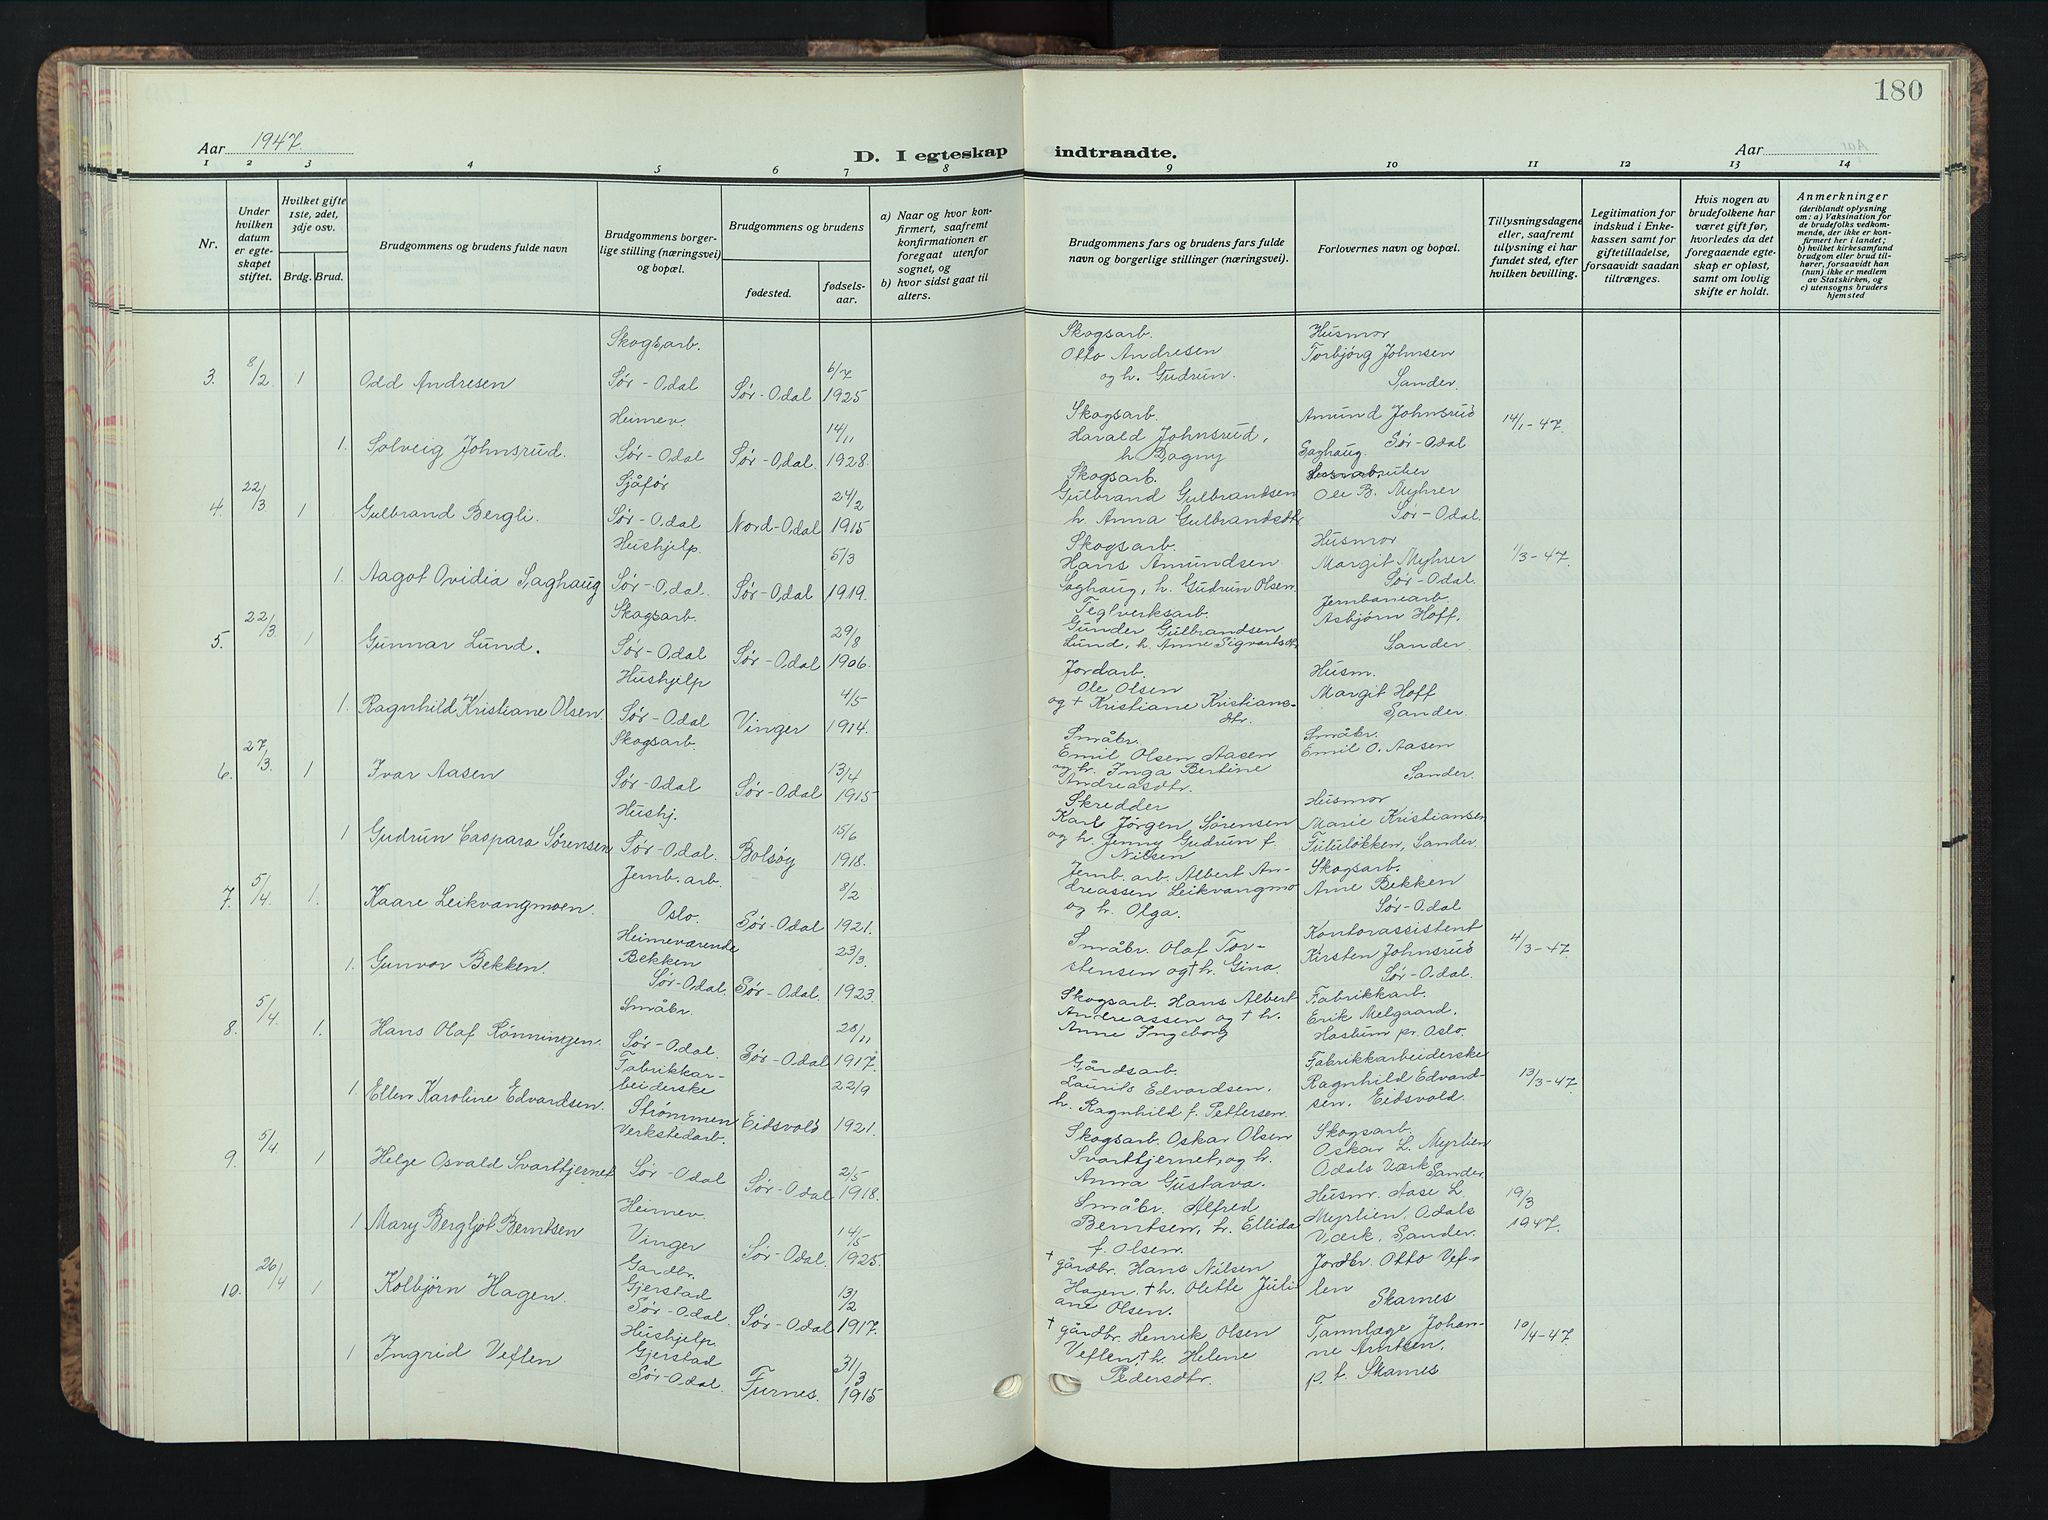 180
Aar 1947.
D. I egteskap indtraadte.
Aar
1 2 3 4 5 6 7 8 9 10 11 12 13 14
Nr.
Under hvilken datum er egteskapet stiftet.
Hvilket gifte 1ste, 2det, 3dje osv.
Brdg. Brud.
Brudgommens og brudens fulde navn
Brudgommens borgerlige stilling (næringsvei) og bopæl.
Brudgommens og brudens
fødested.
fødselsaar.
a) Naar og hvor konfirmert, saafremt konfirmationen er foregaat utenfor sognet, og
b) hvor sidst gaat til alters.
Brudgommens fars og brudens fars fulde navn og borgerlige stillinger (næringsvei).
Forlovernes navn og bopæl.
Tillysningsdagene eller, saafremt tillysning ei har fundet sted, efter hvilken bevilling.
Legitimation for indskud i Enkekassen samt for giftetilladelse, forsaavidt saadan tiltrænges.
Hvis nogen av brudefolkene har været gift før, hvorledes da det foregaaende egteskap er opløst, samt om lovlig skifte er holdt.
Anmerkninger (deriblandt oplysning om: a) Vaksination for de brudefolks vedkommende, der ikke er konfirmert her i landet; b) hvilket kirkesamfund brudgom eller brud tilhører, forsaavidt han (hun) ikke er medlem av Statskirken, og c) utensogns bruders hjemsted
3. 8/2 1 Odd Andresen Skogsarb. Sør-Odal Sør-Odal 6/7 1925 Skogsarb. Otto Andresen og h. Gudrun. Husmor Torbjörg Johnsen Sander.
1. Solveig Johnsrud. Heimev. Sør-Odal Sør-Odal. 14/11 1928. Skogsarb. Harald Johnsrud, h Dagny Amund Johnsrud Sør-Odal 14/1-47.
4. 22/3. 1 Gulbrand Bergli. Sjåfør Sør-Odal Nord-Odal 24/2 1915 Skogsarb. Gulbrand Gulbrandsen h. Anna Gulbrandsdtr Saghaug. Ole B. Myhrer Sør-Odal.
1. Aagot Ovidia Saghaug Hushjelp. Sør-Odal. Sør-Odal 5/3 1919. Skogsarb. Hans Amundsen Saghaug, h. Gudrun Olsen. Husmor Margit Myhrer Sør-Odal. 1/3-47.
5. 22/3. 1 Gunnar Lund. Skogsarb. Sør-Odal Sør-Odal 29/8 1906. Teglverksarb. Gunder Gulbrandsen Lund, h. Anne Sigvartsdtr Jernbanearb. Asbjørn Hoff, Sander.
1. Ragnhild Kristiane Olsen. Hushjelp Sør-Odal Vinger 4/5 1914. Jordarb. Ole Olsen og + Kristiane Kristiansdtr. Husm. Margit Hoff Sander.
6. 27/3. 1 Ivar Aasen Skogsarb. Sør-Odal Sør-Odal 13/4 1915 Småbr. Emil Olsen Aasen og h. Inga Bertine Andreasdtr. Småbr. Emil O. Aasen Sander.
1 Gudrun Caspara Sørensen Hushj. Sør-Odal. Bolsøy 15/6 1918. Skredder Karl Jörgen Sørensen og h. Jenny Gudrun f. Nilsen Husmor Marie Kristiansen Fululökken, Sander.
7. 5/4. 1. Kaare Leikvangmoen. Jernb. arb. Oslo. Sør-Odal 8/2 1921. Jernb. arb. Albert Andreassen Leikvangmo og h. Olga. Skogsarb. Arne Bekken Sør-Odal
1. Gunvor Bekken. Heimeværende Bekken Sør-Odal. Sør-Odal. 23/3. 1923. Småbr. Olaf Torstensen og+h. Gina. Kontorassistent Kirsten Johnsrud Sør-Odal. 4/3-47.
8. 5/4. 1. Hans Olaf Rönningen. Småbr. Sør-Odal. Sør-Odal 20/11 1917. Skogsarb. Hans Albert Andreassen og + h. Anne Ingeborg Fabrikkarb. Erik Melgaard. Haslum pr. Oslo.
1. Ellen Karoline Edvardsen. Fabrikkarbeiderske Strømmen Eidsvold 22/9 1921. Gårdsarb. Laurits Edvardsen. h. Ragnhild f. Pettersen. Fabrikkarbeiderske Ragnhild Edvardsen. Eidsvold. 13/3-47.
9. 5/4. 1 Helge Osvald Svarttjernet Verkstedarb. Sør-Odal Sør-Odal 2/5 1918. Skogsarb. Oskar Olsen Svarttjernet, og h. Anna Gustava. Skogsarb. Oskar L. Myrlien Odals Værk Sander.
1 Mary Bergljot Berntsen Heimev. Vinger Sør-Odal. 14/5 1925. Småbr. Alfred Berntsen, h. Ellida f. Olsen. Husm. Aase L. Myrlien, Odals Værk. Sander. 19/3 1947.
10. 26/4 1 Kolbjørn Hagen. Gardbr. Gjerstad Sør-Odal. Sør-Odal 13/2 1917. + gårdbr. Hans Nilsen Hagen, + h. Olette Juliane Olsen. Jordbr. Otto Veflen Skarnes
1 Ingrid Veflen Hushjelp. Gjerstad Sør-Odal. Furnes. 31/3 1915 + gårdbr. Henrik Olsen Veflen, + h. Helene Pedersdtr. Tannlæge Johanne Arntsen, p. t. Skarnes 10/4-47.